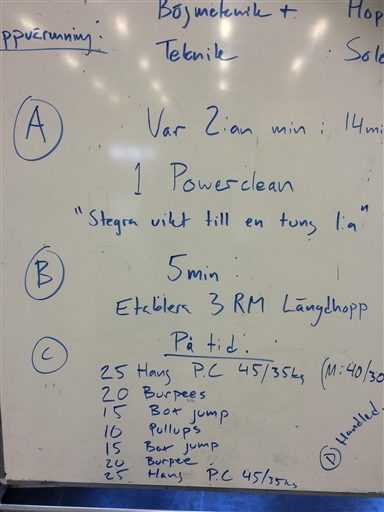 Böjmeknik + Hop
ppvärmning:
Teknik Sole
A
Var 2:an min i 14mi
1 Powerclean
"Stegra vikt till en tung 1:a"
B
5min:
Etablera 3 RM Längdhopp
C
På tid:
25 Hang P.C 45/35kg (M:40/30
20 Burpees
15 Box jump
10 Pullups
15 Box jump
20 Burpee
25 Hang P.C 45/35kg
D Handled.